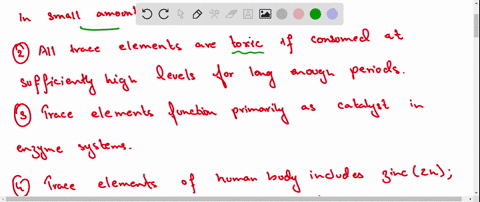 In small amount
② All trace elements are toxic if consumed at
sufficiently high levels for long enough periods.
③ Trace elements function primarily as catalyst in
enzyme systems.
④ Trace elements of human body includes zinc (Zn);